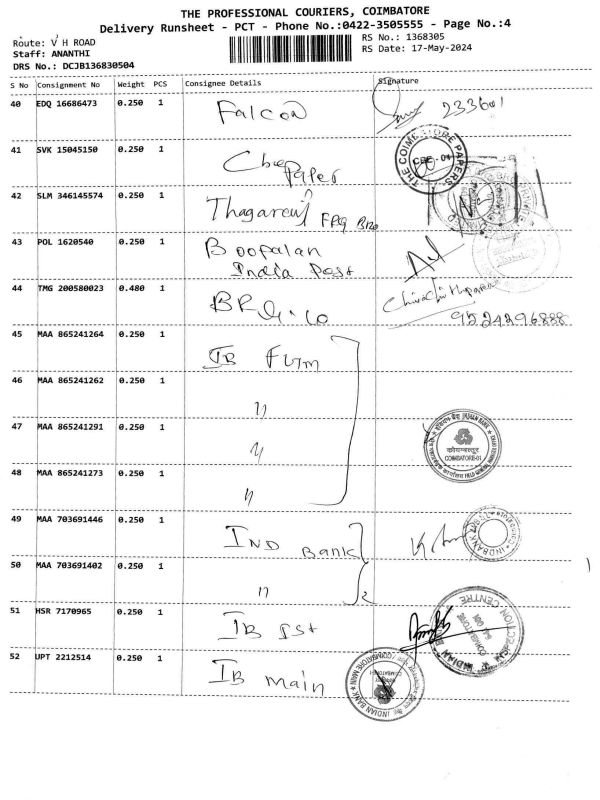 THE PROFESSIONAL COURIERS, COIMBATORE
Delivery Runsheet - PCT - Phone No.:0422-3505555 - Page No.:4
Route: V H ROAD
RS No.: 1368305
Staff: ANANTHI
RS Date: 17-May-2024
DRS No.: DCJB136830504
S No Consignment No Weight PCS Consignee Details Signature
40 EDQ 16686473 0.250 1 Falcon 233601
41 SVK 15045150 0.250 1 Cbe Paper
THE COIMBATORE PAPERS
CBE - 01
42 SLM 346145574 0.250 1 Thagarew
43 POL 1620540 0.250 1 Boopalan
India Post
44 TMG 200580023 0.480 1 9524296888
45 MAA 865241264 0.250 1 IB
46 MAA 865241262 0.250 1 "
47 MAA 865241291 0.250 1 "
INDIAN BANK
कोयम्बत्तूर
COIMBATORE-01
48 MAA 865241273 0.250 1 "
49 MAA 703691446 0.250 1 IND Bank
50 MAA 703691402 0.250 1 "
51 HSR 7170965 0.250 1 IB Ist
INSPECTION CENTRE
INDIAN
COIMBATORE
52 UPT 2212514 0.250 1 IB main
INDIAN BANK
COIMBATORE MAIN